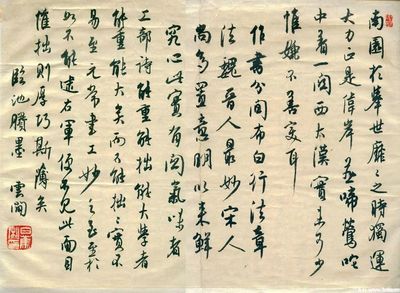 南園於舉世靡靡之時獨運
大力正是偉岸若啼鶯吟
中著一關西大漢實未可少
惟嫌不善變耳
作書分間布白行法章
法魏晉人最妙宋人
尚多置意明以來鮮
究心此實有關氣味者
工部詩能重能拙能大學者
能重能大矣而不能拙拙實不
易至元常書工妙之至至於
如不能迨右軍便不見此面目
惟拙則厚巧斯薄矣
臨池賸墨 雲閒